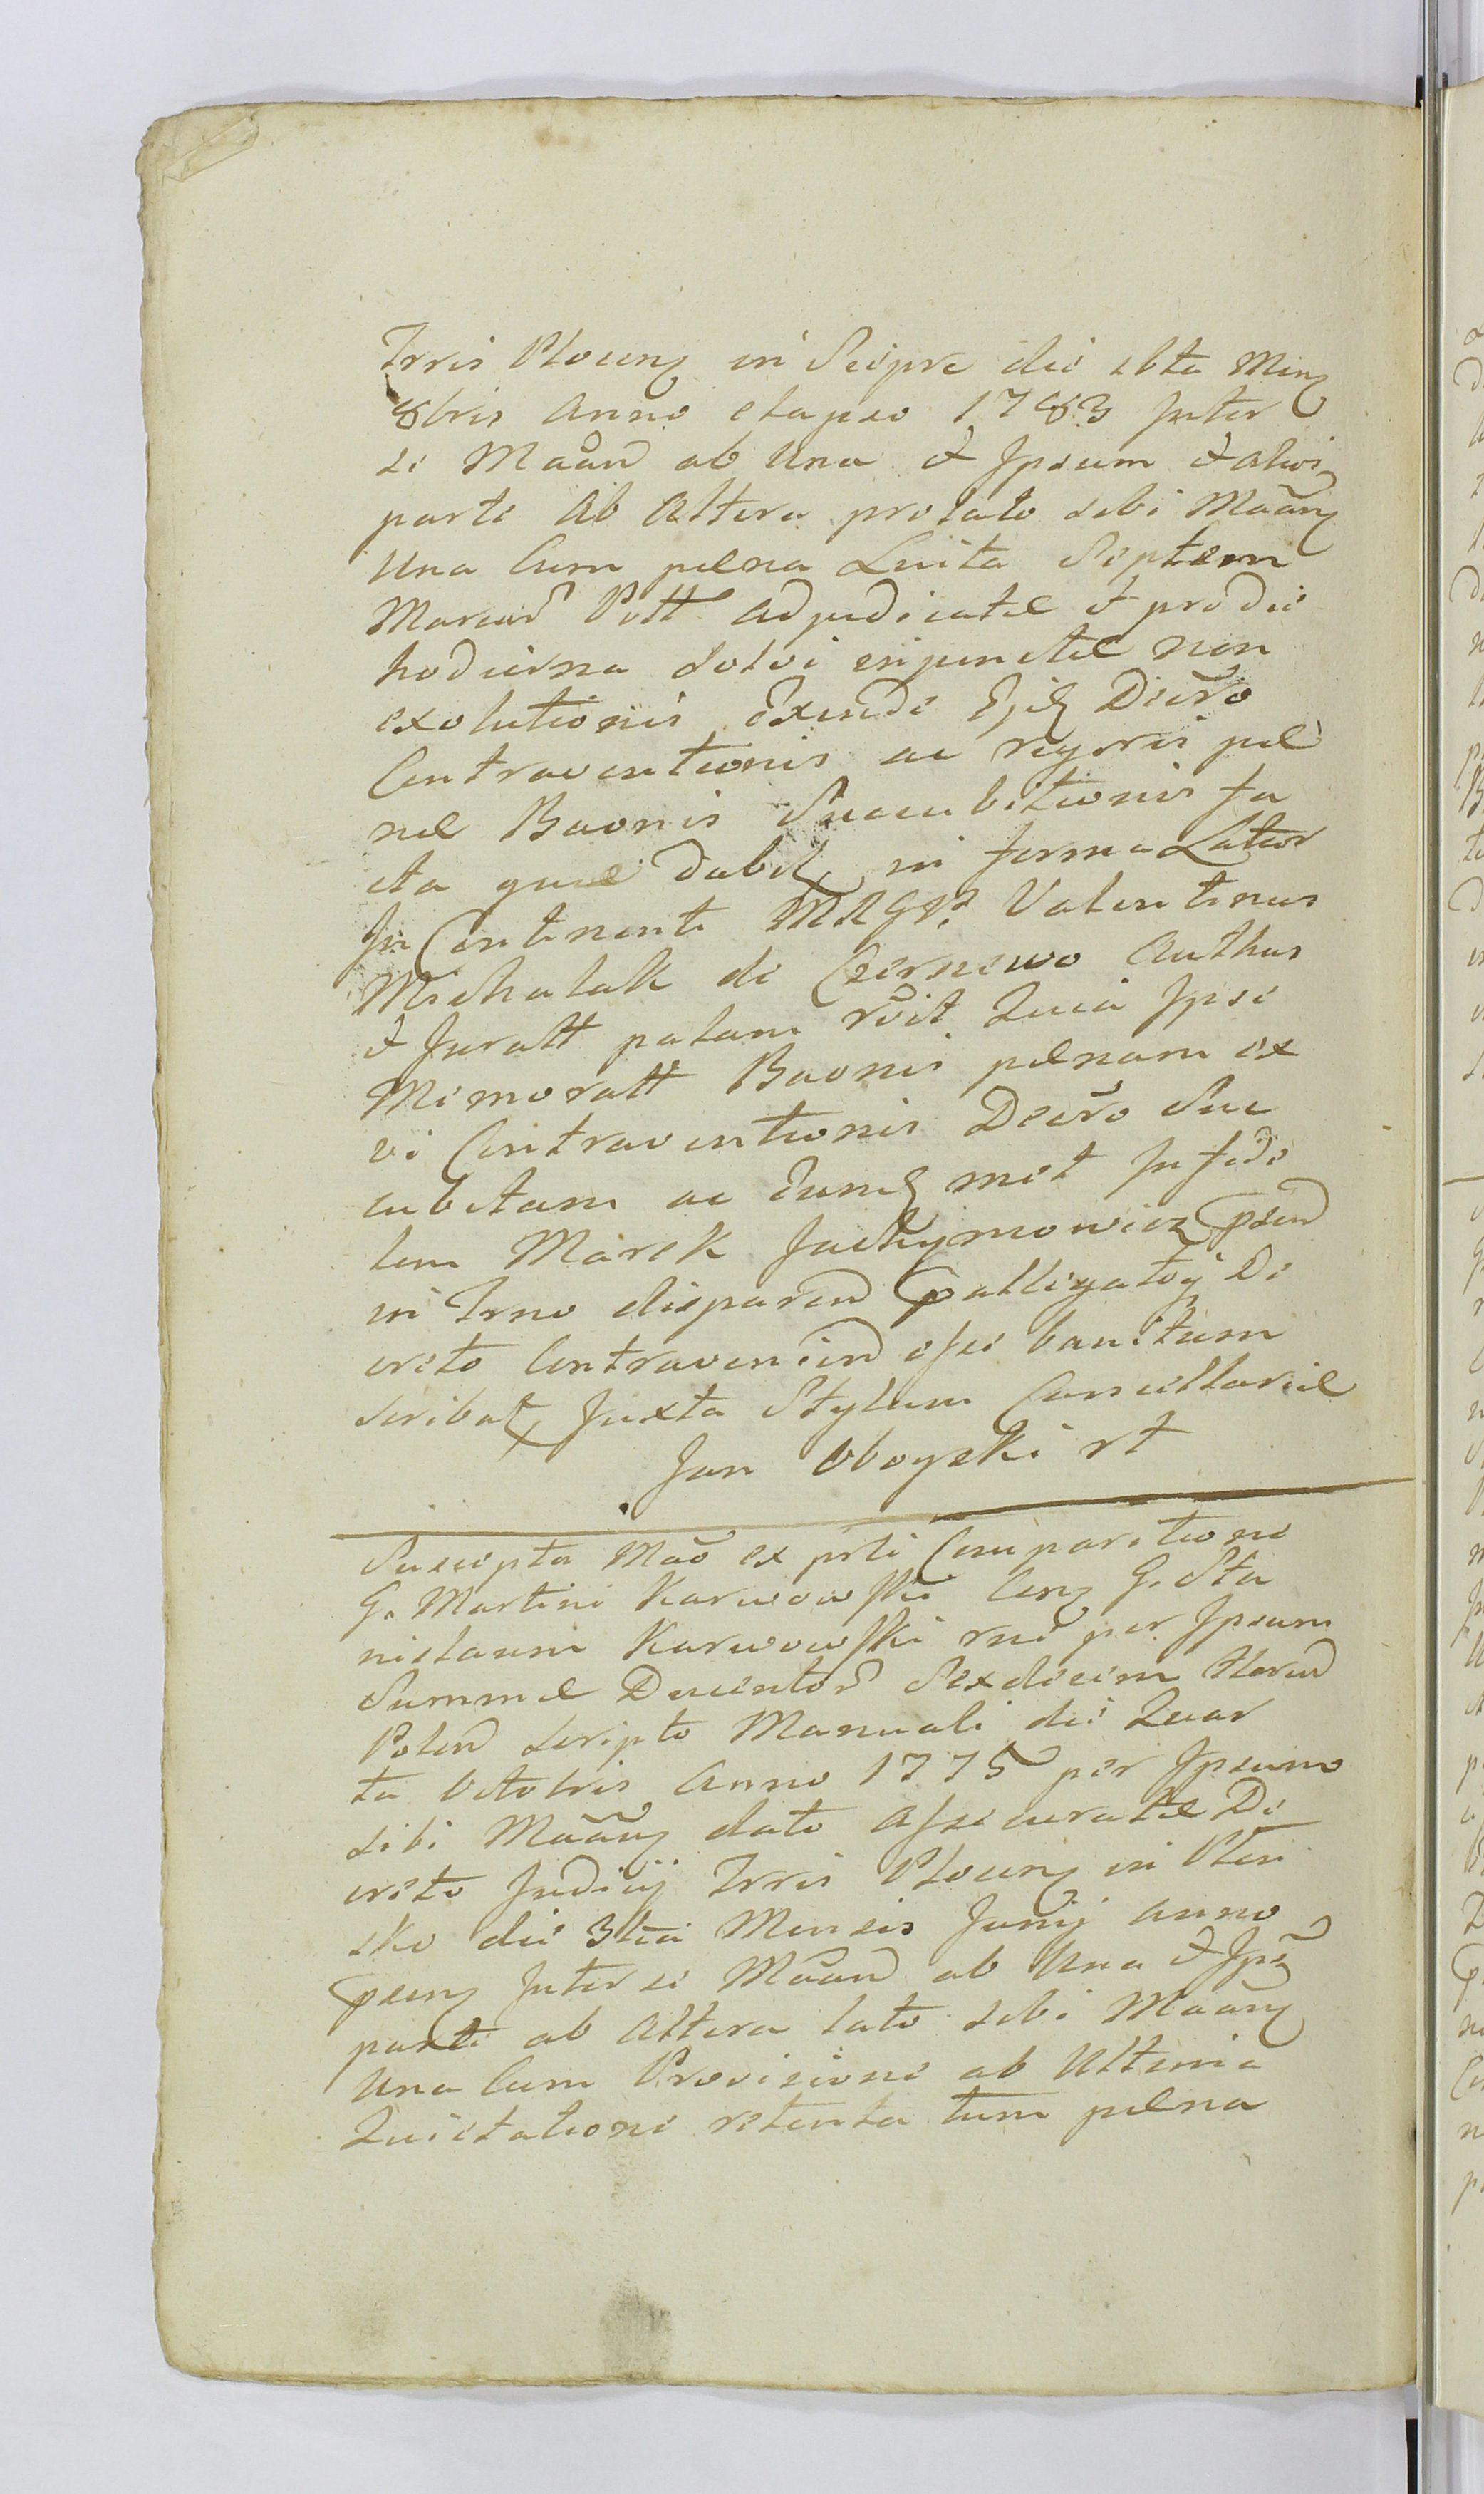 Trris Plocen̄ in Sierpre die xbta Men̄
8bris Anno elapso 1783 Inter
se Maand ab Una & Ipsum & alios
parte Ab Altera prolato sibi Maan̄
Una Cum pæna Luita Septem
Marcar Poll Adjudicatæ & pro die
hodierna solvi injunctæ non
exolutionis Exinde Ejq Decro
Contraventionis ac rygoris pæ
næ Baonis Succubitionis fa
cta quæ dabit in forma Latior
In Continenti MRGPR Valentinus
Michalak de Czernewo Authus
& Juratt palam rvit Quia Ipse
Memoratt Baonis pænam ex
vi Contraventionis Decro Suc
cubitam ac Eumq met Infide
lem Marek Jachymowicz psend
in Trno disparend palligatoj De
creto Contraveniend esse banitum
scribat Juxta Stylum Cancellariæ
Jan Oboyski rt
Suscepta Mao ex prti Comparitione
G. Martini Karwowski Con̄ G. Sta
nislaum Karwowski rne per Ipsum
Summæ Ducentor Sexdecim floren
Polon scripto Manuali die Quar
ta Octobris Anno 1775 per Ipsum
sibi Maan̄ dato Assecuratæ De
creto Judicij Trris Plocen̄ in Plon
sko die 3tia Mensis Junij anno
psen̄ Inter se Maand ab Una & Ips̄
parte ab Altera lato sibi Maan̄
Una Cum Provisione ab Ultima
Quietatione retenta tum pæna